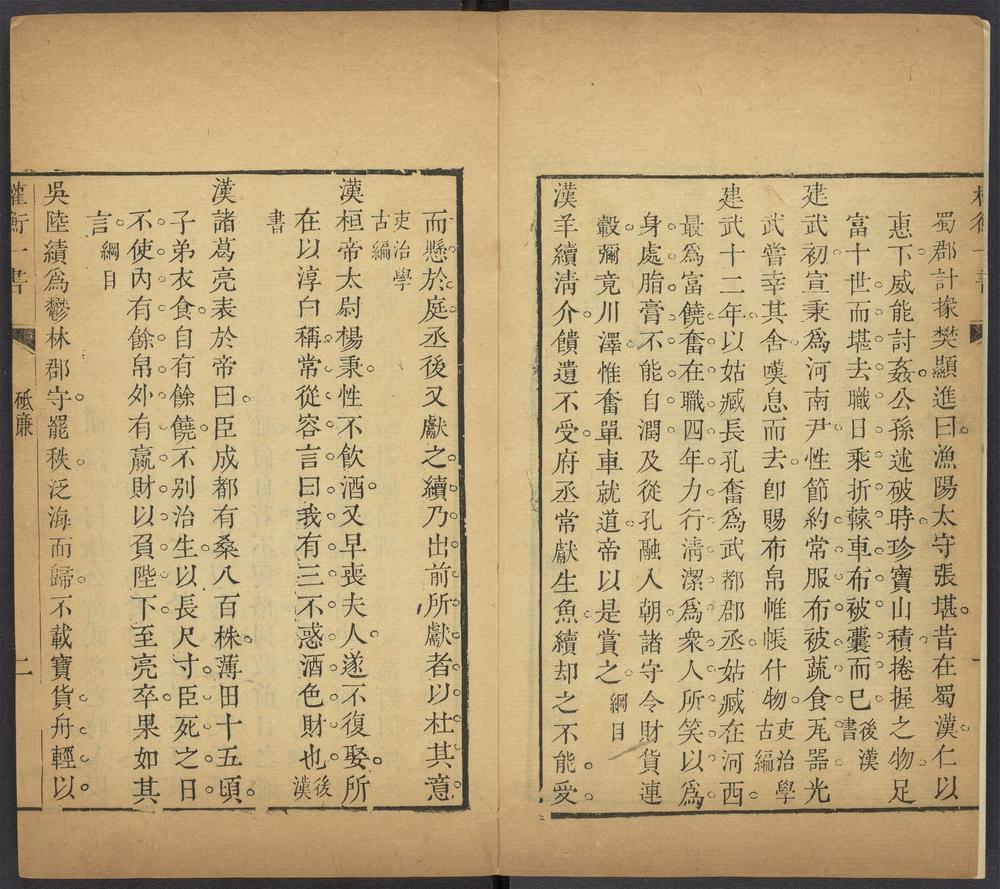 蜀郡計掾樊顯進曰漁陽太守張堪昔在蜀漢仁以
惠下威能討姦公孫述破時珍寶山積捲握之物足
富十世而堪去職日乘折轅車布被囊而巳後漢書
建武初宣秉爲河南尹性節約常服布被蔬食瓦器光
武嘗幸其舍嘆息而去卽賜布帛帷帳什物吏治學古編
建武十二年以姑臧長孔奮爲武都郡丞姑臧在河西
最爲富饒奮在職四年力行淸潔爲衆人所笑以爲
身處脂膏不能自潤及從孔融入朝諸守令財貨連
轂彌竟川澤惟奮單車就道帝以是賞之綱目
漢羊續淸介饋遺不受府丞常獻生魚續却之不能受
而懸於庭丞後又獻之續乃出前所獻者以杜其意
吏治學古編
漢桓帝太尉楊秉性不飮酒又早喪夫人遂不復娶所
在以淳白稱常從容言曰我有三不惑酒色財也後漢
書
漢諸葛亮表於帝曰臣成都有桑八百株薄田十五頃
子弟衣食自有餘饒不别治生以長尺寸臣死之日
不使內有餘帛外有贏財以負陛下至亮卒果如其
言綱目
吳陸績爲鬱林郡守罷秩泛海而歸不載寶貨舟輕以
權衡一書
砥廉
二